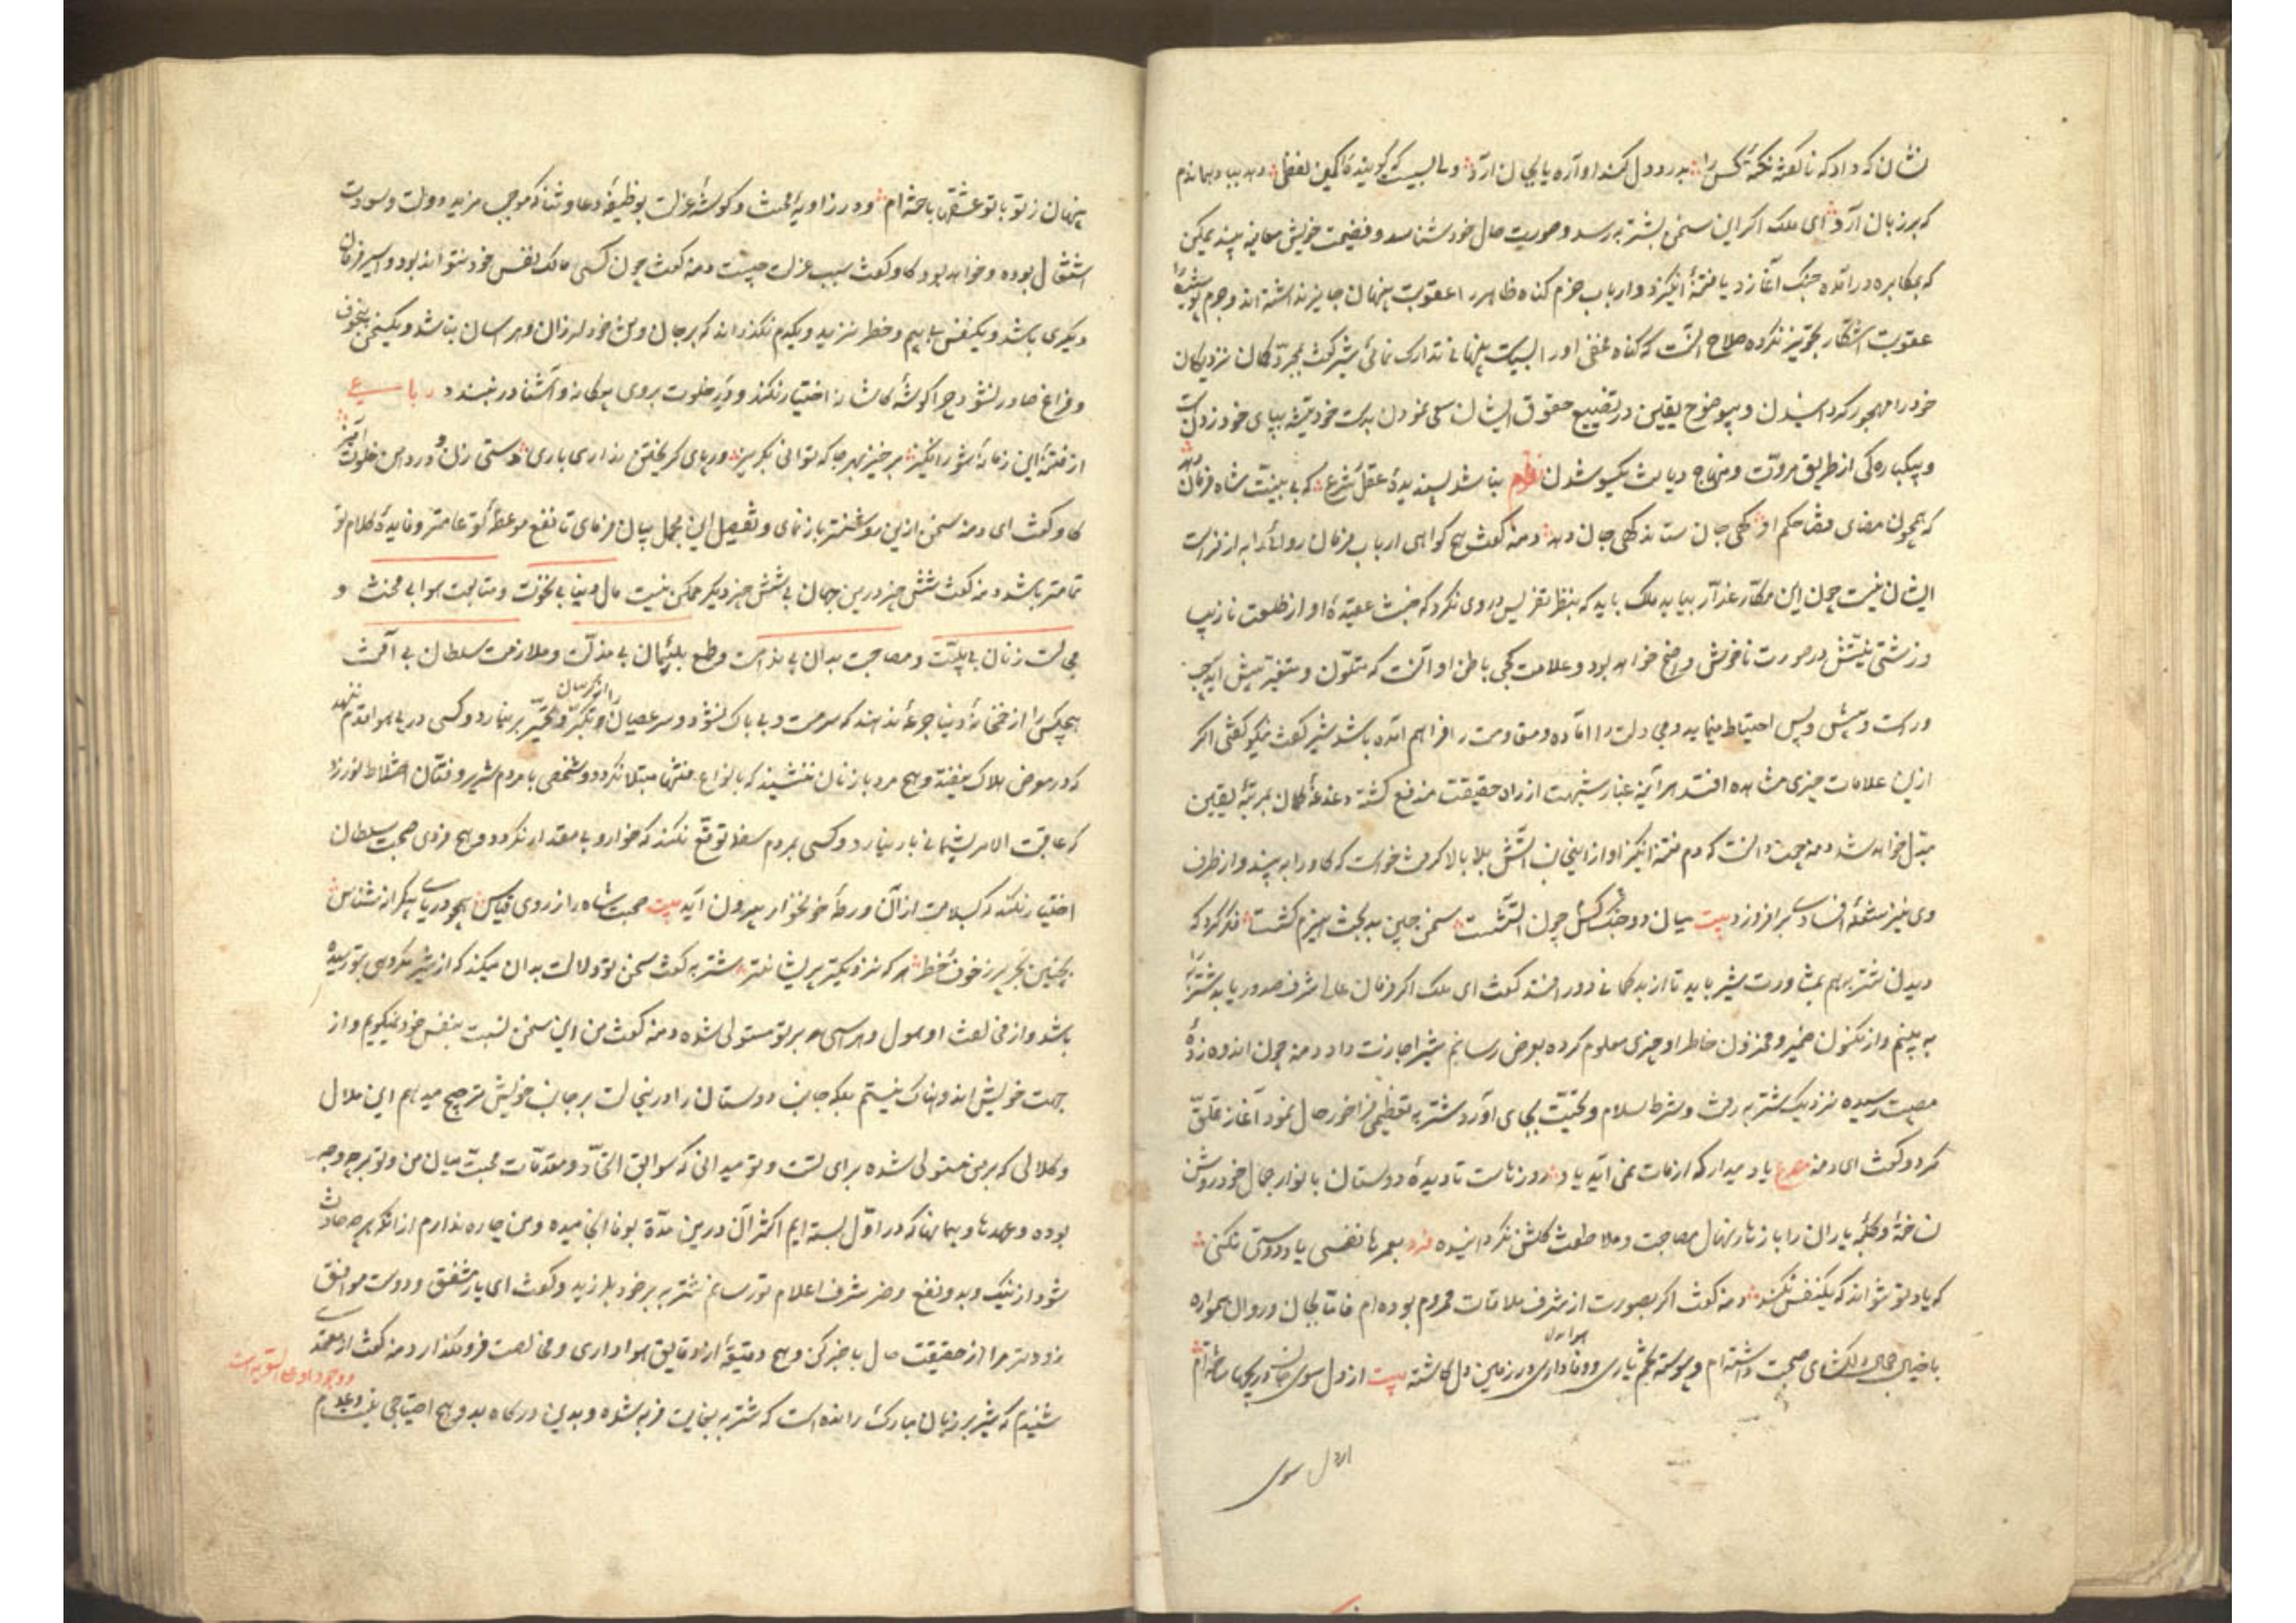 نشان که داد که ناگفته نکتهٔ کس را بدرد دل کند او آره یا بجان آرد و بسا لبیست که گویندگا کمین لفظی
که بر زبان آرد ای ملک اکر این سخن بشتربه رسد و صورت حال خود بشناسد و فضیحت خویش معاینه بیند یمکن
که بمکابره درآمده جنک آغازد یا فتنهٔ انکیزد و ارباب حزم کناه ظاهر را عقوبت پنهان جایز نداشته اند و جرم پوشیده را
عقوبت آشکار تجویز نکرده صلاح آنست که کناه مخفی او را بسیاست پنهانی تدارک نمائی شیر کفت بمجرد کمان نزدیکان
خود را مهجور کردانیدن و بیوضوح یقین در تضییع حقوق ایشان سعی نمودن بدست خود تیشه بپای خود زدنست
و بیکبارکی از طریق مروت و منهاج دیانت یکسو شدن نظم نباشد پسندیدهٔ عقل و شرع که بی بینت شاه فرمان دهد
که همچون مضای قضا حکم او کهی جان ستاند کهی جان دهد دمنه کفت هیچ کواهی ارباب فرمان روائی را به از فراست
ایشان نیست چون این مکار غدار بیاید ملک باید که بنظر تفرس در وی نکرد که خبث عقیدهٔ او از طلعت نازیب
و زشتی نیتش در صورت ناخوش واضح خواهد بود و علامت کجی باطن او آنست که متلون و متغیر پیش آید چپ
و راست و پیش و پس احتیاط مینماید و مجادلت را آماده و مقاومت را فراهم آمده باشد شیر کفت نیکو کفتی اکر
ازین علامات چیزی مشاهده افتد هرآینه غبار شبهت از راه حقیقت مندفع کشته دغدغهٔ کمان بمرتبهٔ یقین
مبدل خواهد شد دمنه چون دانست که دم فتنه انکیز او از اینجانب آتش بلا بالا کرفت خواست که کاو را به بیند و از طرف
وی نیز شعلهٔ افسادی برافروزد بیت میان دو کس جنک چون آتشست سخن چین بدبخت هیزم کشست فکر کرد که
دیدن شتربه هم بمشاورت شیر باید تا از بدکمانی دور افتد کفت ای ملک اکر فرمان عالی شرف صدور یابد شتربه را
به بینم و از مکنون ضمیر و مخزون خاطر او چیزی معلوم کرده بعرض رسانم شیر اجازت داد دمنه چون اندوه زدهٔ
مصیبت رسیده نزدیک شتربه رفت و شرط سلام و تحیت بجای آورد شتربه تعظیمی فراخور حال نمود آغاز تملق
کرد و کفت ای دمنه مصرع یاد میدار که از مات نمی آید یاد روزهاست تا دیدهٔ دوستان بانوار جمال خود روشن
نساختهٔ و کلبهٔ یاران را بازهار نهال مصاحبت و ملاطفت کلشن نکردانیده فرد بعمرها نفسی یاد دوستی نکنی
که یاد تو نتواند که یکنفس نکند دمنه کفت اکر بصورت از شرف ملاقات محروم بوده ام فاما بجان و روان همواره
با خیال جمال دلکشای صحبت داشته ام و پیوسته تخم یاری و وفاداری و هواداری در زمین دل کاشته بیت از دل سوی جانان دریچها ساخته ام
از دل سوی
پنهان ز تو با تو عشقها باخته ام و در زاویهٔ محنت و کوشهٔ عزلت بوظیفهٔ دعا و ثنا که موجب مزید دولت و سعادت
اشتغال بوده و خواهد بود کاو کفت سبب عزلت چیست دمنه کفت چون کسی مالک نفس خود نتواند بود و اسیر فرمان
دیکری باشد و یکنفس بی بیم و خطر نزید و یکدم نکذراند که بر جان و تن خود لرزان و هراسان نباشد و یکسخن بیخوف
و فزاغ صادر نشود چرا کوشهٔ کاشانه اختیار نکند و در خلوت بروی بیکانه و آشنا در نبندد رباعی
از فتنهٔ این زمانهٔ شورانکیز برخیز بهر جا که توانی بکریز ور پای کریختن نداری باری دستی زن و در دامن خلوت آویز
کاو کفت ای دمنه سخن ازین روشنتر باز نمای و تفصیل این مجمل بیان فرمای تا نفع موعظهٔ تو عامتر و فایدهٔ کلام تو
تمامتر باشد دمنه کفت شش چیز درین جهان بی شش چیز دیکر ممکن نیست مال دنیا بی نخوت و متابعت هوا بی محنت و
مجالست زنان بی بلیت و مصاحبت بدان بی ندامت و طمع بلئیمان بی مذلت و ملازمت سلطان بی آفت
هیچکس را از خمخانهٔ دنیا جرعهٔ ندهند که سرمست و بی باک نشود و سر عصیان و تکبر و تجبر برنیارد و کسی در پی هوا قدم ننهد
که در معرض هلاک نیفتد و هیچ مرد با زنان ننشیند که بانواع فتنها مبتلا نکردد و شخصی با مردم شریر و فتان اختلاط نورزد
که عاقبت الامر پشیمانی بار نیارد و کسی بمردم سفله توقع نکند که خوار و بی مقدار نکردد و هیچ فردی صحبت سلطان
اختیار نکند که بسلامت از آن ورطهٔ خونخوار بیرون آید بیت صحبت شاه را از روی قیاس همچو دریای بیکران شناس
بچنین بحر پر ز خوف و خطر هر که نزدیکتر پریشانتر شتربه کفت سخن تو دلالت بدان میکند که از شیر مکروهی بتو رسیده
باشد و از مخالفت او هول و هراسی بر تو مستولی شده دمنه کفت من این سخن نسبت بنفس خود نمیکویم و از
جهت خویش اندوهناک نیستم بلکه جانب دوستان را درینحالت بر جانب خویش ترجیح میدهم این ملال
و کلالی که بر من مستولی شده برای تست و تو میدانی که سوابق اتحاد و مقدمات محبت میان من و تو بر چه وجه
بوده و عهدها و پیمانها که در اول بسته ایم اکثر آن درین مدت بوفا انجامیده و من چاره ندارم از آنکه هر چه حادث
شود از نیک و بد و نفع و ضر بشرف اعلام تو رسانم شتربه بر خود بلرزید و کفت ای یار مشفق و دوست موافق
زودتر مرا از حقیقت حال باخبر کن و هیچ دقیقهٔ از دقایق هواداری و مخالصت فرو مکذار دمنه کفت از معتمدی
شنیدم که شیر بر زبان مبارک رانده است که شتربه بغایت فربه شده و بدین درکاه بدو هیچ احتیاجی نیست و عدم
و وجود او علی السویه است